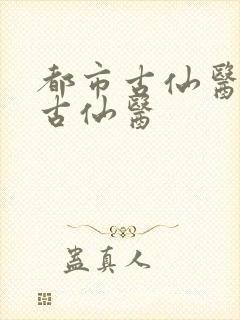 都市古仙醫
古仙醫
蠱真人